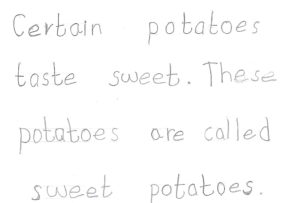 Certain potatoes
taste sweet. These
potatoes are called
sweet potatoes.